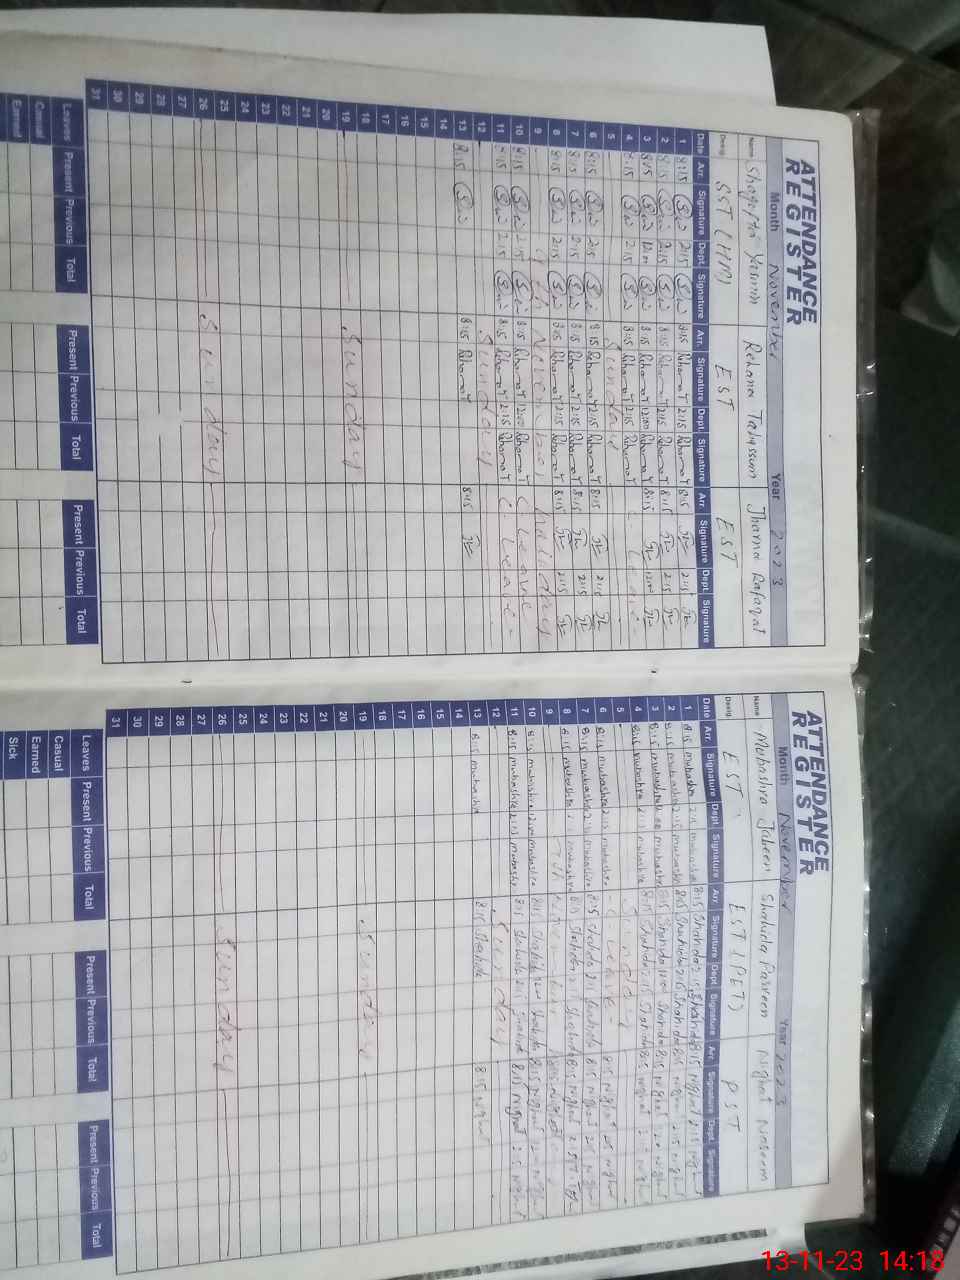 ATTENDANCE
REGISTER
Month November Year 2023
Name Shagufta Yasmin Rehana Tabassum Jharna Rafaqat
Desig SST (HM) EST EST
Date Arr. Signature Dept. Signature Arr. Signature Dept. Signature Arr. Signature Dept. Signature
1 8:15 2:15 8:15 Rehana T 2:15 Rehana T 8:15 2:15
2 8:15 2:15 8:15 Rehana T 2:15 Rehana T 8:15 2:15
3 8:15 12:00 8:15 Rehana T 12:00 Rehana T 8:15 12:00
4 8:15 2:15 8:15 Rehana T 2:15 Rehana T Leave
5 Sunday
6 8:15 2:15 8:15 Rehana T 2:15 Rehana T 8:15 2:15
7 8:15 2:15 8:15 Rehana T 2:15 Rehana T 8:15 2:15
8 8:15 2:15 8:15 Rehana T 2:15 Rehana T 8:15 2:15
9 9th November holiday
10 8:15 8:15 Rehana T 12:00 Rehana T C Leave
11 8:15 2:15 8:15 Rehana T 2:15 Rehana T C Leave
12 Sunday
13 8:15 8:15 Rehana T 8:15
14
15
16
17
18
19 Sunday
20
21
22
23
24
25
26 Sunday
27
28
29
30
31
Leaves Present Previous Total Present Previous Total Present Previous Total
Casual
Earned
ATTENDANCE
REGISTER
Month November Year 2023
Name Mubashra Jabeen Shahida Parveen Nighat Naseem
Desig EST EST (PET) PST
Date Arr. Signature Dept. Signature Arr. Signature Dept. Signature Arr. Signature Dept. Signature
1 8:15 mubashra 2:15 mubashra 8:15 Shahida Shahida 8:15 Nighat 2:15 Nighat
2 8:15 mubashra 2:15 mubashra 8:15 Shahida 2:15 Shahida 8:15 Nighat 2:15 Nighat
3 8:15 mubashra mubashra 8:15 Shahida 12:00 Shahida 8:15 Nighat Nighat
4 8:15 mubashra 2:15 mubashra 8:15 Shahida 2:15 Shahida 8:15 Nighat Nighat
5 Sunday
6 8:15 mubashra 2:15 mubashra C Leave 8:15 Nighat Nighat
7 8:15 mubashra 2:15 mubashra 8:15 Shahida Shahida 8:15 Nighat 2:15 Nighat
8 8:15 mubashra mubashra 8:15 Shahida Shahida 8:15 Nighat
9
10 8:15 mubashra 12:00 mubashra 8:15 Shahida 12:00 Shahida 8:15 Nighat Nighat
11 8:15 mubashra 2:15 mubashra 8:15 Shahida Shahida 8:15 Nighat Nighat
12 Sunday
13 8:15 mubashra 8:15 Shahida 8:15 Nighat
14
15
16
17
18
19 Sunday
20
21
22
23
24
25
26 Sunday
27
28
29
30
31
Leaves Present Previous Total Present Previous Total Present Previous Total
Casual
Earned
Sick
13-11-23 14:18